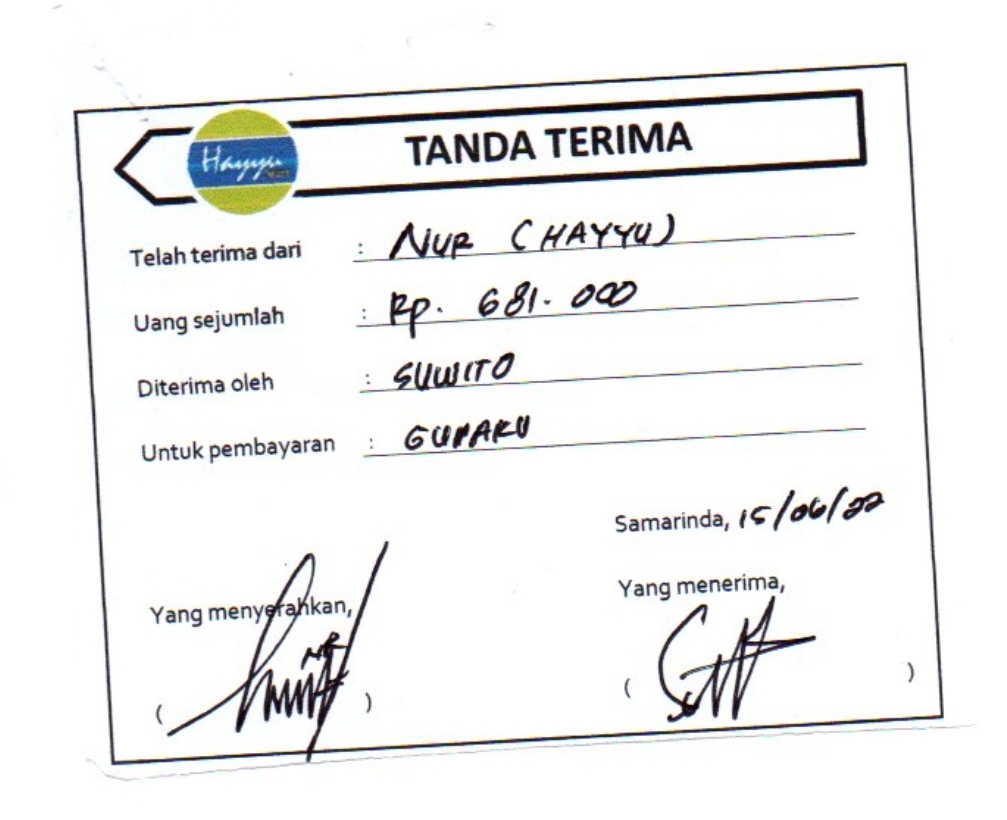 Hayyu
TANDA TERIMA
Telah terima dari : NUR (HAYYU)
Uang sejumlah : Rp. 681.000
Diterima oleh : SUWITO
Untuk pembayaran : GUMAKU
Samarinda, 15/06/22
Yang menyerahkan,
Yang menerima,
( )
( )